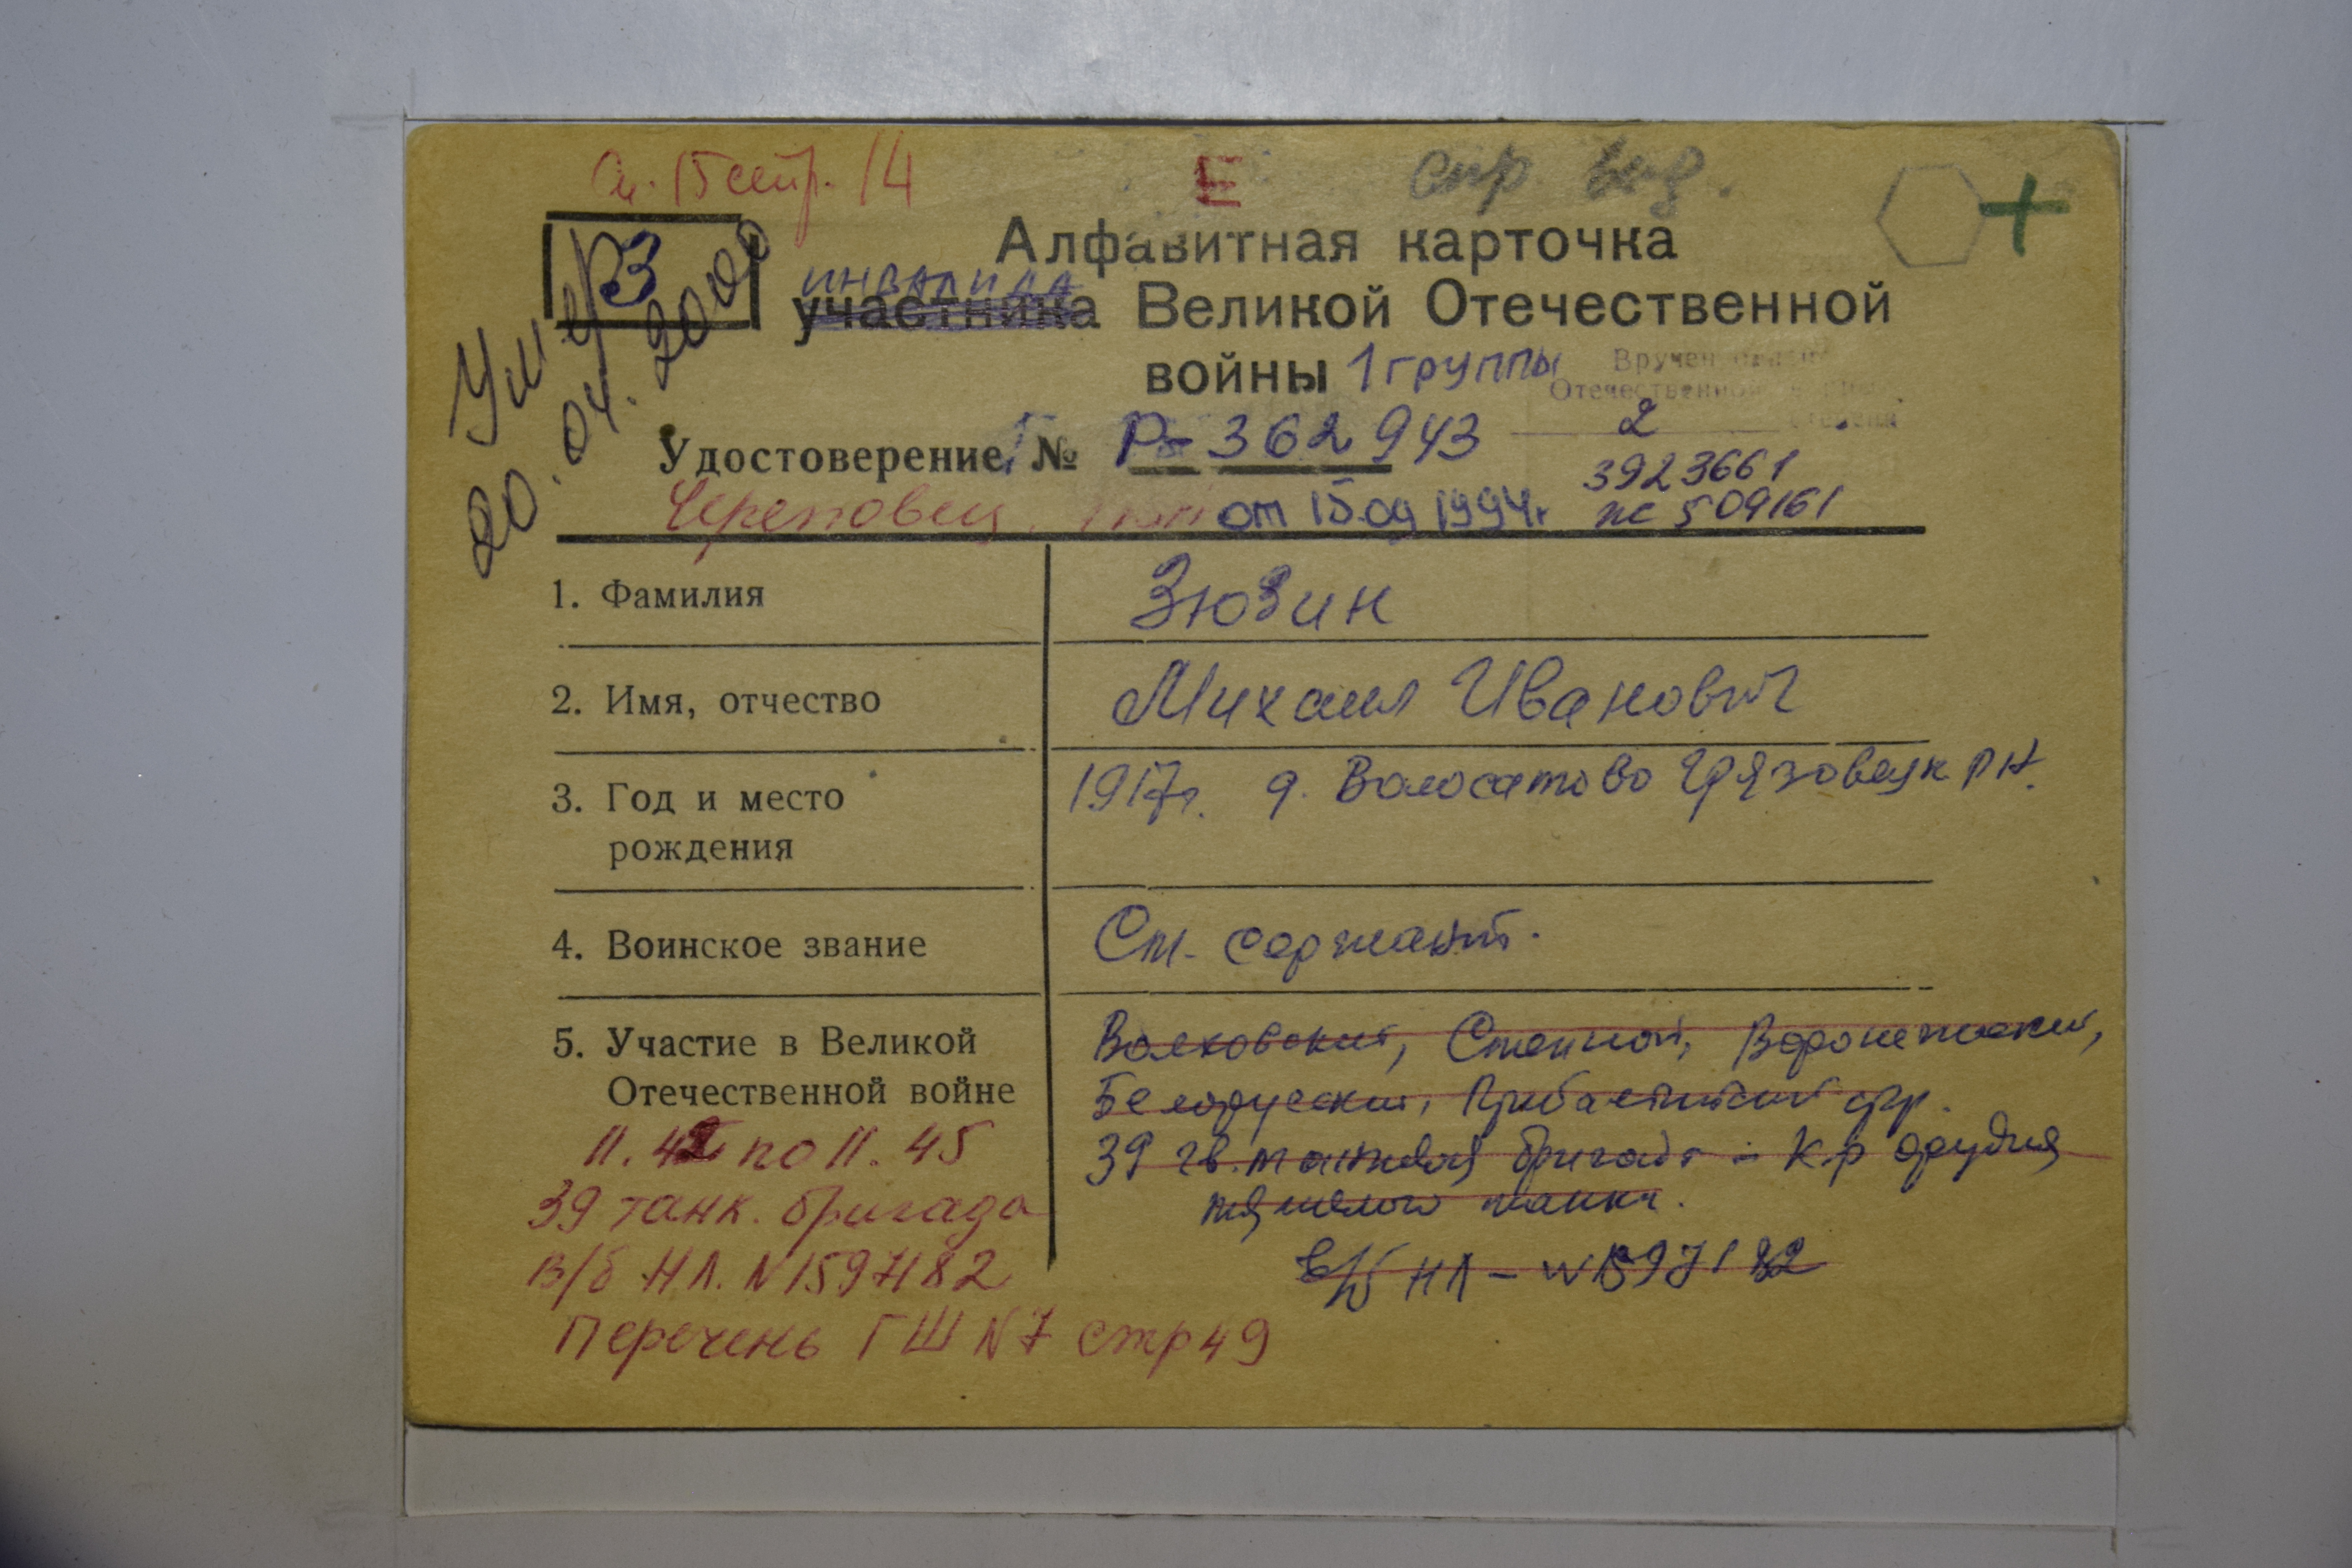 15 стр. 14
Е
спр. выд.
+
З
Умер
20.04.2000
Алфавитная карточка
инвалида
участника Великой Отечественной
войны 1 группы
Вручен орден
Отечественной войны
2 степени
Удостоверение № Р-362943
3923661
пс 509161
Череповец от 15.09 1994г
1. Фамилия Зюзин
2. Имя, отчество Михаил Иванович
3. Год и место рождения 1917г. д. Волосатово Грязовецк р-н.
4. Воинское звание Ст. сержант.
5. Участие в Великой Отечественной войне Волховский, Степной, Воронежский,
Белорусский, Прибалтийский фр.
39 гв. танковая бригада – к-р орудия
тяжелого танка.
в/б НЛ – № 1597182
11.42 по 11.45
39 танк. бригада
В/б НЛ. N 1597182
Перечень ГШ N7 стр 49